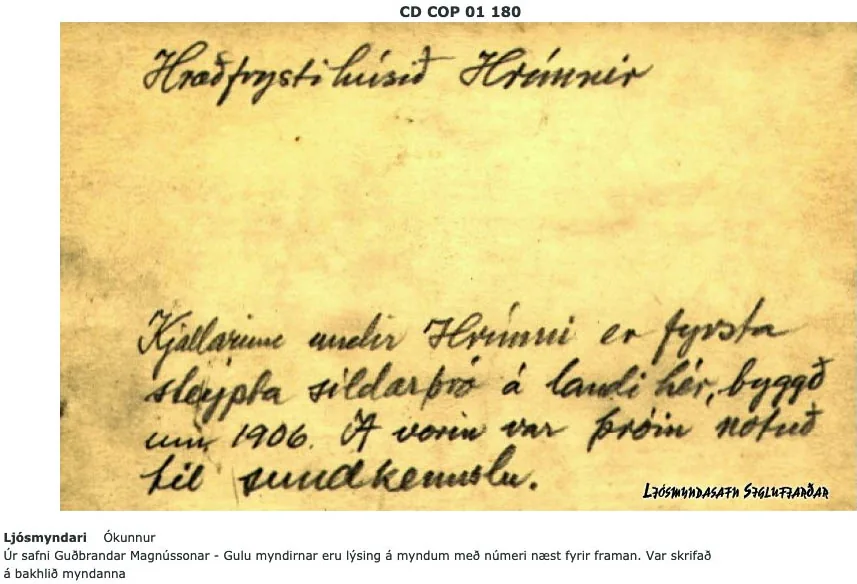 CD COP 01 180
Hraðfrystihúsið Hrímnir
Kjallarinn undir Hrímni er fyrsta
steypta síldarþró á landi hér, byggð
um 1906. Á vorin var þróin notuð
til sundkennslu.
Ljósmyndasafn Siglufjarðar
Ljósmyndari Ókunnur
Úr safni Guðbrandar Magnússonar - Gulu myndirnar eru lýsing á myndum með númeri næst fyrir framan. Var skrifað
á bakhlið myndanna